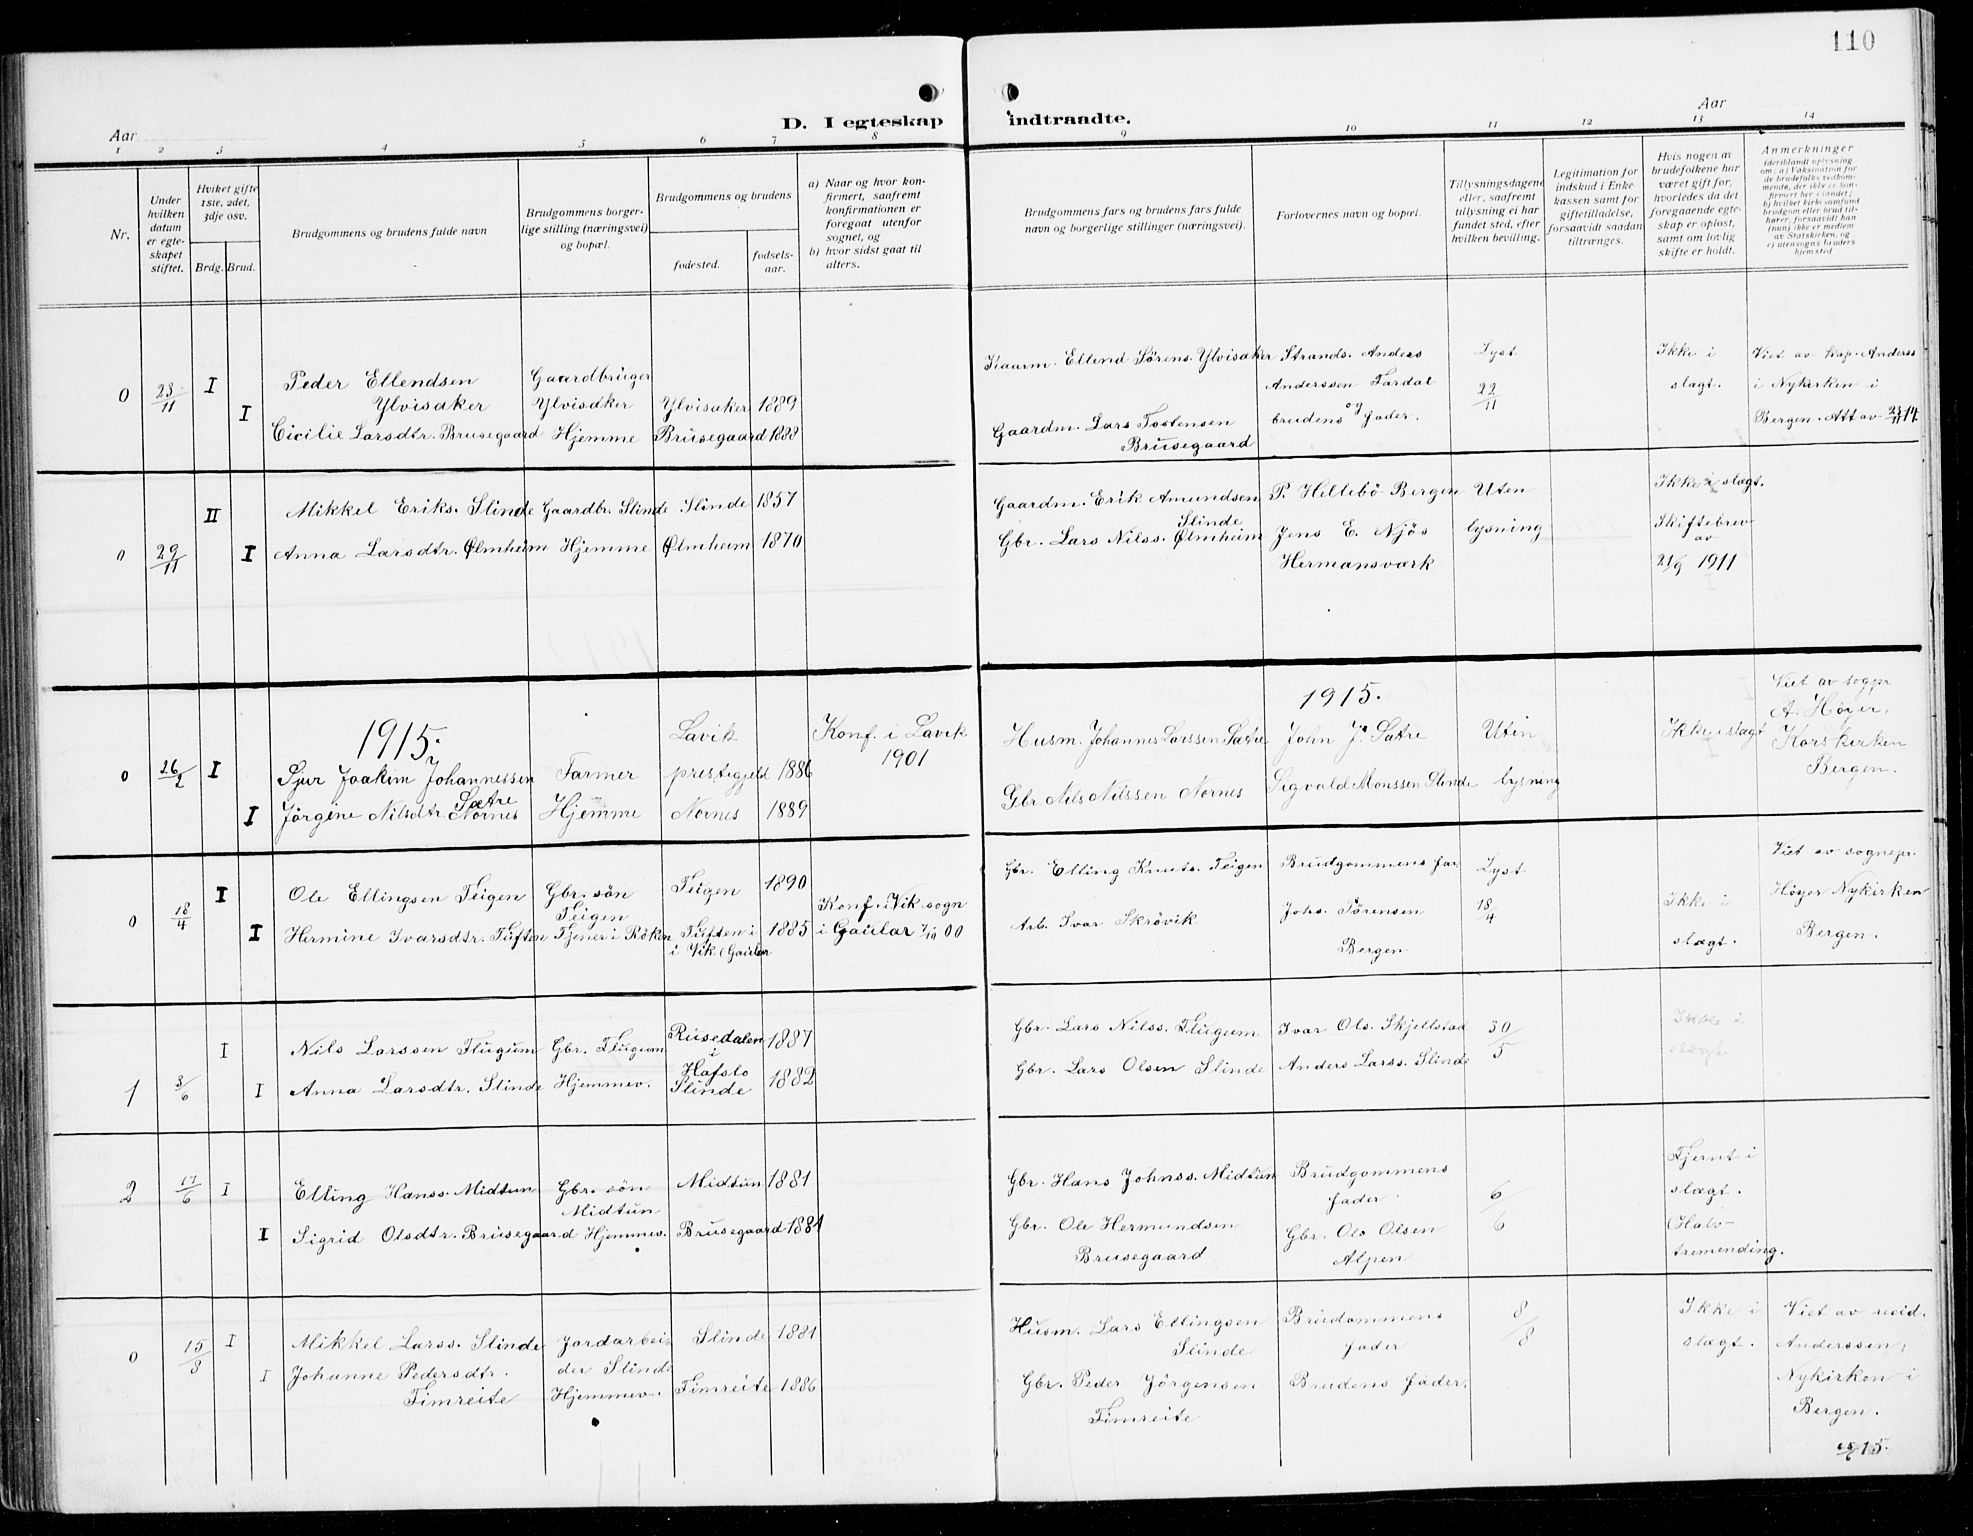 110
Aar
D. I egteskap
indtraadte.
Aar
1 2 3 4 5 6 7 8
9 10 11 12 13 14
Nr.
Under hvilken datum er egteskapet stiftet.
Hviket gifte 1ste, 2det, 3dje osv.
Brdg.
Brud.
Brudgommens og brudens fulde navn
Brudgommens borgerlige stilling (næringsvei) og bopæl.
Brudgommens og brudens
fødested.
fødsels-aar.
a) Naar og hvor konfirmert, saafremt konfirmationen er foregaat utenfor sognet, og
b) hvor sidst gaat til alters.
Brudgommens fars og brudens fars fulde navn og borgerlige stillinger (næringsvei).
Forlovernes navn og bopæl.
Tillysningsdagene eller, saafremt tillysning ei har fundet sted, efter hvilken bevilling.
Legitimation for indskud i Enkekassen samt for giftetilladelse, forsaavidt saadan tiltrænges.
Hvis nogen av brudefolkene har været gift før, hvorledes da det foregaaende egteskap er opløst, samt om lovlig skifte er holdt.
Anmerkninger
(deriblandt oplysning om: a) Vaksination for de brudefolks vedkommende, der ikke er konfirmert her i landet; b) hvilket kirkesamfund brudgom eller brud tilhører, forsaavidt han (hun) ikke er medlem av Statskirken, og c) utensogns bruders hjemsted
0 23/11 I
I
Peder Ellendsen
Ylvisaker
Cicilie Larsdtr. Brusegaard
Gaardbruger
Ylvisaker
Hjemme
Ylvisaker 1889
Brusegaard 1888
Kaarm. Ellend Sörens. Ylvisaker
Gaardm. Lars Tostensen
Brusegaard
Strands. Anders
Anderssen Fardal
og
brudens fader.
Lyst
22/11
Ikke i
slagt.
Viet av kap. Anderss
i Nykirken i
Bergen. Att av 23/11 14
0 29/11 II
I
Mikkel Eriks. Slinde
Anna Larsdtr. Ølmheim
Gaardbr. Slinde
Hjemme
Slinde 1857
Ølmheim 1870
Gaardm. Erik Amundsen
Slinde
Gbr. Lars Nilss. Ølmheim
P. Hellebö Bergen
Jens E. Njös
Hermansværk
Uten
lysning
Ikke i slægt.
Skiftebrev
av
21/9 1911
1915.
1915.
0 26/2 I
I
Sjur Joakim Johannessen
Sætre
Jörgine Nilsdtr. Nornes
Farmer
Hjemme
Lavik
prestegjeld 1886
Nornes 1889
Konf. i Lavik
1901
Husm. Johannes Larssen Sætre
Gbr. Nils Nilssen Nornes
John J. Sætre
Sigvald Monssen Slinde
Uten
lysning
Ikke i slægt
Viet av sogpr
A. Höyer,
Korskirken
Bergen.
0 18/4 I
I
Ole Ellingsen Teigen
Hermine Ivarsdtr. Tuften
Gbr. sön
Teigen
Tjener i Röken
Teigen 1890
Tuften i 1885
i Vik (Gaular
Konf. i Vik sogn
i Gaular 7/10 00
Gbr. Elling Knuts. Teigen
Arb. Ivar Skrövik
Brudgommens far
Johs. Sörensen
Bergen
Lyst
18/4
Ikke i
slægt.
Viet av sognepr.
Höyer Nykirken
Bergen.
1 3/6 I
I
Nils Larssen Flugum
Anna Larsdtr. Slinde
Gbr. Flugum
Hjemmev.
Rusedalen 1887
i
Hafslo
Slinde 1882
Gbr. Lars Nilss. Flugum
Gbr. Lars Olsen Slinde
Ivar Ols. Skjellstad
Anders Larss. Slinde
30/5
Ikke i
slægt.
2 17/6 I
I
Elling Hanss. Midtun
Sigrid Olsdtr. Brusegaard
Gbr. sön
Midtun
Hjemmev.
Midtun 1881
Brusegaard 1881
Gbr. Hans Johnss. Midtun
Gbr. Ole Hermundsen
Brusegaard
Brudgommens
fader
Gbr. Ole Olsen
Alpen
6/6
Fjernt i
slægt.
(Halv-
tremending.
0 15/8 I
I
Mikkel Larss. Slinde
Johanne Pedersdtr.
Timreite
Jordarbei-
der Slinde
Hjemmev.
Slinde 1881
Timreite 1886
Husm. Lars Ellingsen
Slinde
Gbr. Peder Jörgensen
Timreite
Brudommens
fader
Brudens fader.
8/8
Ikke i
slægt.
Viet av resid.
Anderssen,
Nykirken i
Bergen.